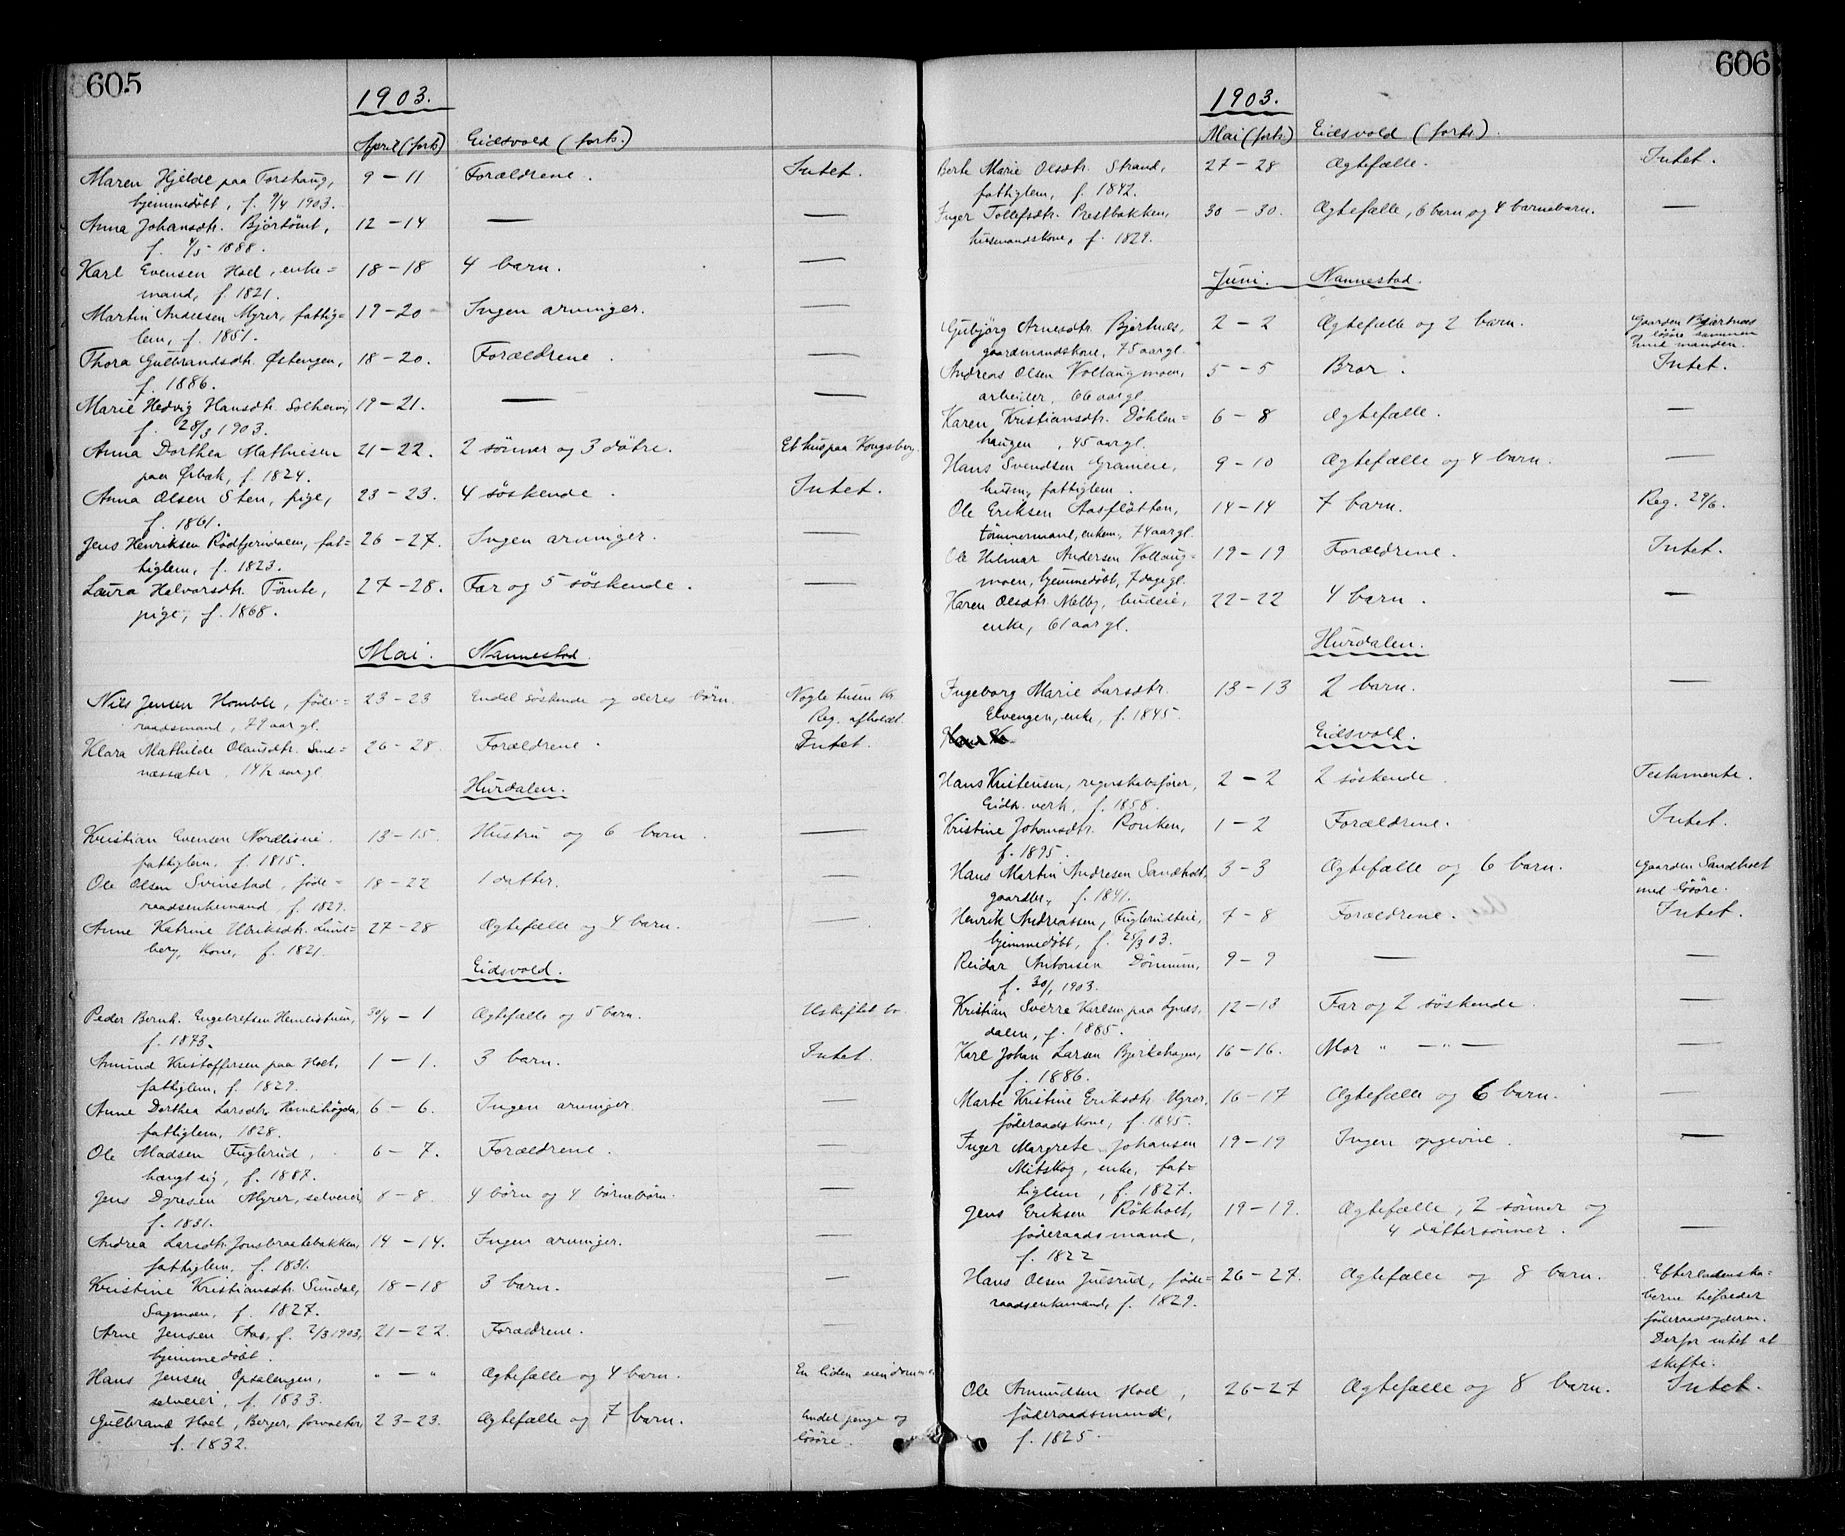 605
1903.
April (forts) Eidsvold (forts.)
Maren Hjelde paa Forshaug, 9 – 11 Forældrene. Intet.
hjemmedøbt, f. 9/4 1903.
Anna Johansdtr. 12 – 14 — —
f. 4/5 1888.
Karl Evensen Hoel, enke= 18 – 18 4 barn. —
mand, f. 1821.
Martin Andersen Myrer, fattig= 19 – 20 Ingen arvinger. —
lem, f. 1851.
Thora Gulbrandsdtr. Østengen, 18 – 20. Forældrene. —
f. 1886.
Marie Hedvig Hansdtr. Solheim, 19 – 21. — —
f. 28/3 1903.
Anna Dorthea Mathiesen 21 – 22. 2 sönner og 3 dötre. Et hus paa Kongsberg.
paa Ørbæk, f. 1824.
Anna Olsen Sten, pige, 23 – 23. 4 söskende. Intet.
f. 1861.
Jens Henriksen fat= 26 – 27. Ingen arvinger. —
tiglem, f. 1823.
Laura Halvorsdtr. Tömte, 27 – 28. Far og 5 söskende. —
pige, f. 1868.
Mai. Nannestad.
Nils Jensen Homble, föde= 23 – 23 Endel söskende og deres börn. Nogle tusen kr.
raadsmand, 74 aar gl. Reg. afholdt.
Klara Mathilde Olausdtr. 26 – 28. Forældrene. Intet.
næssæter, 14½ aar gl.
Hurdalen.
Kristian Evensen Nordlisvei 13 – 15. Hustru og 6 barn. —
fattiglem, f. 1815.
Ole Olsen Svinstad, föde= 18 – 22 1 datter. —
raadsenkemand, f. 1829.
Anne Katrine Ulriksdtr. Lund= 27 – 28 Ægtefælle og 4 barn. —
berg, kone, f. 1821.
Eidsvold.
Peder Bernh. Engebretsen Hemlistuen, 30/4 – 1 Ægtefælle og 5 barn. Uskiftet bo
f. 1873.
Amund Kristoffersen paa Hoel, 1 – 1. 3 barn. Intet.
fattiglem, f. 1829.
Anne Dorthea Larsdtr. Hemlihögda, 6 – 6. Ingen arvinger. —
fattiglem, 1828.
Ole Madsen Fuglerud, 6 – 7. Forældrene. —
hængt sig, f. 1887.
Jens Dyresen Myrer, selveier, 8 – 8. 4 börn og 4 börnebörn. —
f. 1831.
Andrea Larsdtr. Jonsbraatebakken, 14 – 14. Ingen arvinger. —
fattiglem, f. 1831.
Kristine Kristiansdtr. Sundal, 18 – 18 3 barn. —
Sagmoen, f. 1827.
Arne Jensen Aas, f. 2/3 1903, 21 – 22. Forældrene. —
hjemmedöbt.
Hans Jensen Opsalengen, „ — „ Ægtefælle og 4 barn. En liden eiendom
selveier, f. 1833.
Gulbrand Hoel, Berger, forvalter, 23 – 23. Ægtefælle og 7 barn. Endel penge og
f. 1832. lösöre.
606
1903.
Mai (forts) Eidsvold (forts).
Berte Marie Olsdtr. Strand, 27 – 28 Ægtefælle. Intet.
fattiglem, f. 1842.
Inger Tollefsdtr. Prestbakken, 30 – 30. Ægtefælle, 6 barn og 4 barnebarn. —
husmandskone, f. 1829.
Juni. Nannestad.
Gubjörg Arnesdtr. Bjertnæs, 2 – 2 Ægtefælle og 2 barn. Gaarden Bjertnæs
gaardmandskone, 75 aar gl. og lösöre sammen
med manden.
Andreas Olsen Vollaugmoen, 5 – 5 Bror. Intet.
arbeider, 66 aar gl.
Karen Kristiansdtr. Döhlen= 6 – 8 Ægtefælle. —
haugen, 45 aar gl.
Hans Svendsen 9 – 10 Ægtefælle og 4 barn. —
husm, fattiglem.
Ole Eriksen Aasflötten, 14 – 14 7 barn. Reg. 29/6.
tömmermand, enkem, 74 aar gl.
Ole Hilmar Andersen Vollaug= 19 – 19 Forældrene. Intet.
moen, hjemmedöbt, 7 dage gl.
Karen Olsdtr. Melby, budeie, 22 – 22 4 barn. —
enke, 61 aar gl.
Hurdalen.
Ingeborg Marie Larsdtr. 13 – 13 2 barn. —
Elvengen, enke, f. 1845.
Eidsvold.
Hans Kristensen, regnskabsförer, 2 – 2 2 söskende. Testamente.
Eids. verk, f. 1858.
Kristine Johansdtr. Ronken, 1 – 2 Forældrene. Intet.
f. 1895.
Hans Martin Andresen Sandholt, 3 – 3 Ægtefælle og 6 barn. Gaarden Sandholt
gaardbr, f. 1841. med lösöre.
Henrik Andreassen, 7 – 8 Forældrene. Intet.
hjemmedöbt, f. 25/3 03.
Reidar Antonsen Dönnum, 9 – 9 — —
f. 30/1 1903.
Kristian Sverre Karlsen paa 12 – 13 Far og 2 söskende. —
dalen, f. 1885.
Karl Johan Larsen Bjerkehagen, 16 – 16. Mor „ — „ — —
f. 1886.
Marte Kristine Eriksdtr. Myrer, 16 – 17 Ægtefælle og 6 barn. —
föderaadskone, f. 1845.
Inger Margrete Johansen 19 – 19 Ingen opgivne. —
Mitskog, enke, fat=
tiglem, f. 1827.
Jens Eriksen Rökholt, 19 – 19. Ægtefælle, 2 sönner og
föderaadsmand, 4 dattersönner. —
f. 1822
Hans Olsen Julsrud, föde= 26 – 27. Ægtefælle og 8 barn. Efterladenska=
raadsenkemand, f. 1829. berne tilfalder
föderaadsyderen.
Derfor intet at
skifte.
Ole Amundsen Hoel, 26 – 27 Ægtefælle og 8 barn. Intet.
föderaadsmand,
f. 1825.